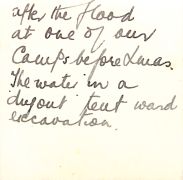 after the flood
at one of our
Camps before Xmas.
The water in a
dugout tent ward
excavation.